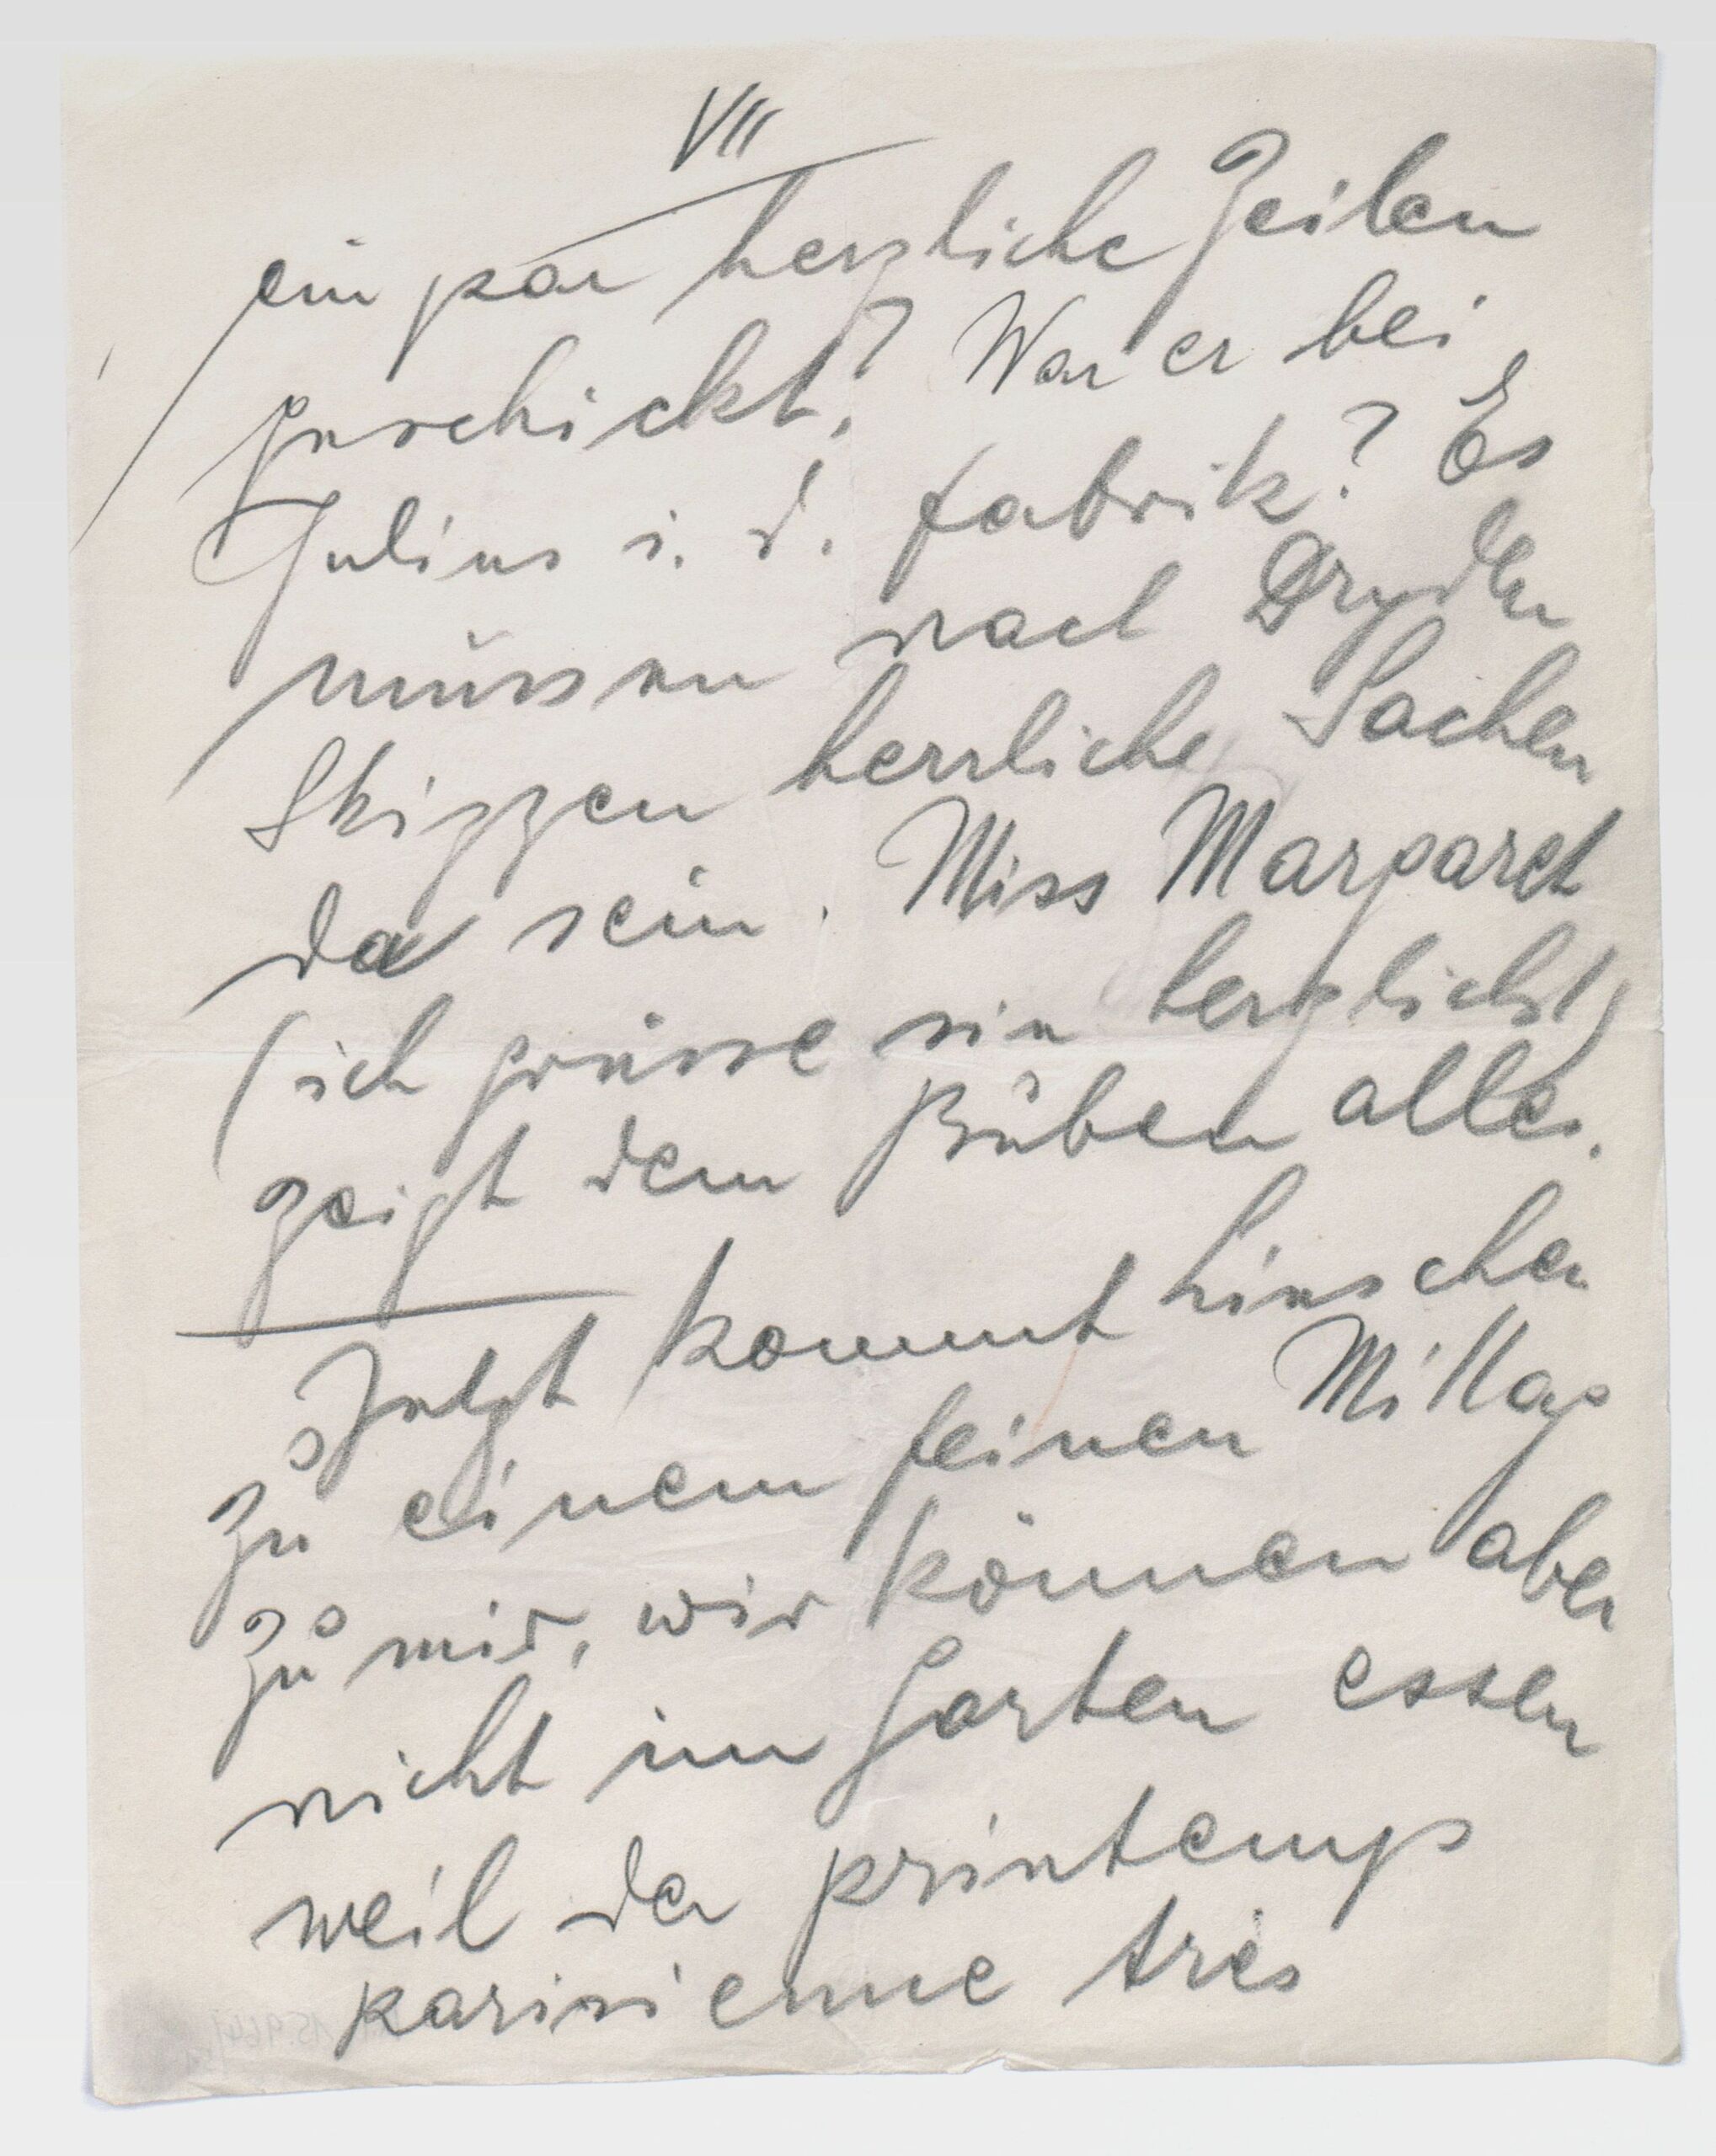 VII
ein par herzliche Zeilen
geschickt? War er bei
Julius i. d. Fabrik? Es
müssen nach Dryden
Skizzen herrliche Sachen
da sein. Miss Margaret
(ich grüsse sie herzlichst)
zeigt dem Büben alles.
Jetzt kommt Linschen
zu einem feinen Mittag
zu mir, wir können aber
nicht im Garten essen
weil der printemps
parisienne très